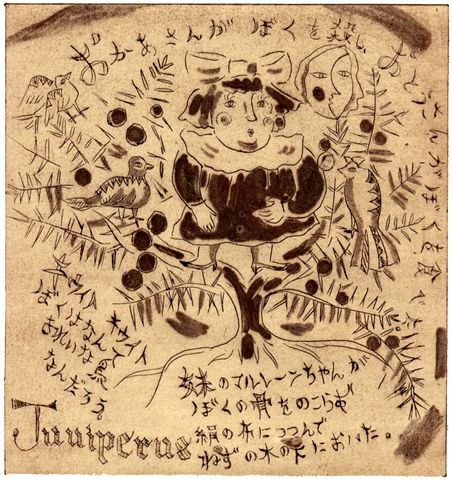 おかあさんが ぼくを殺し
おとうさんがぼくを食べた
キウイト キウイト
ぼくはなんて
きれいな鳥
なんだろう。
妹のマルレーンちゃんが
ぼくの骨をのこらず
絹の布につつんで
ねずの木の下においた。
Juniperus